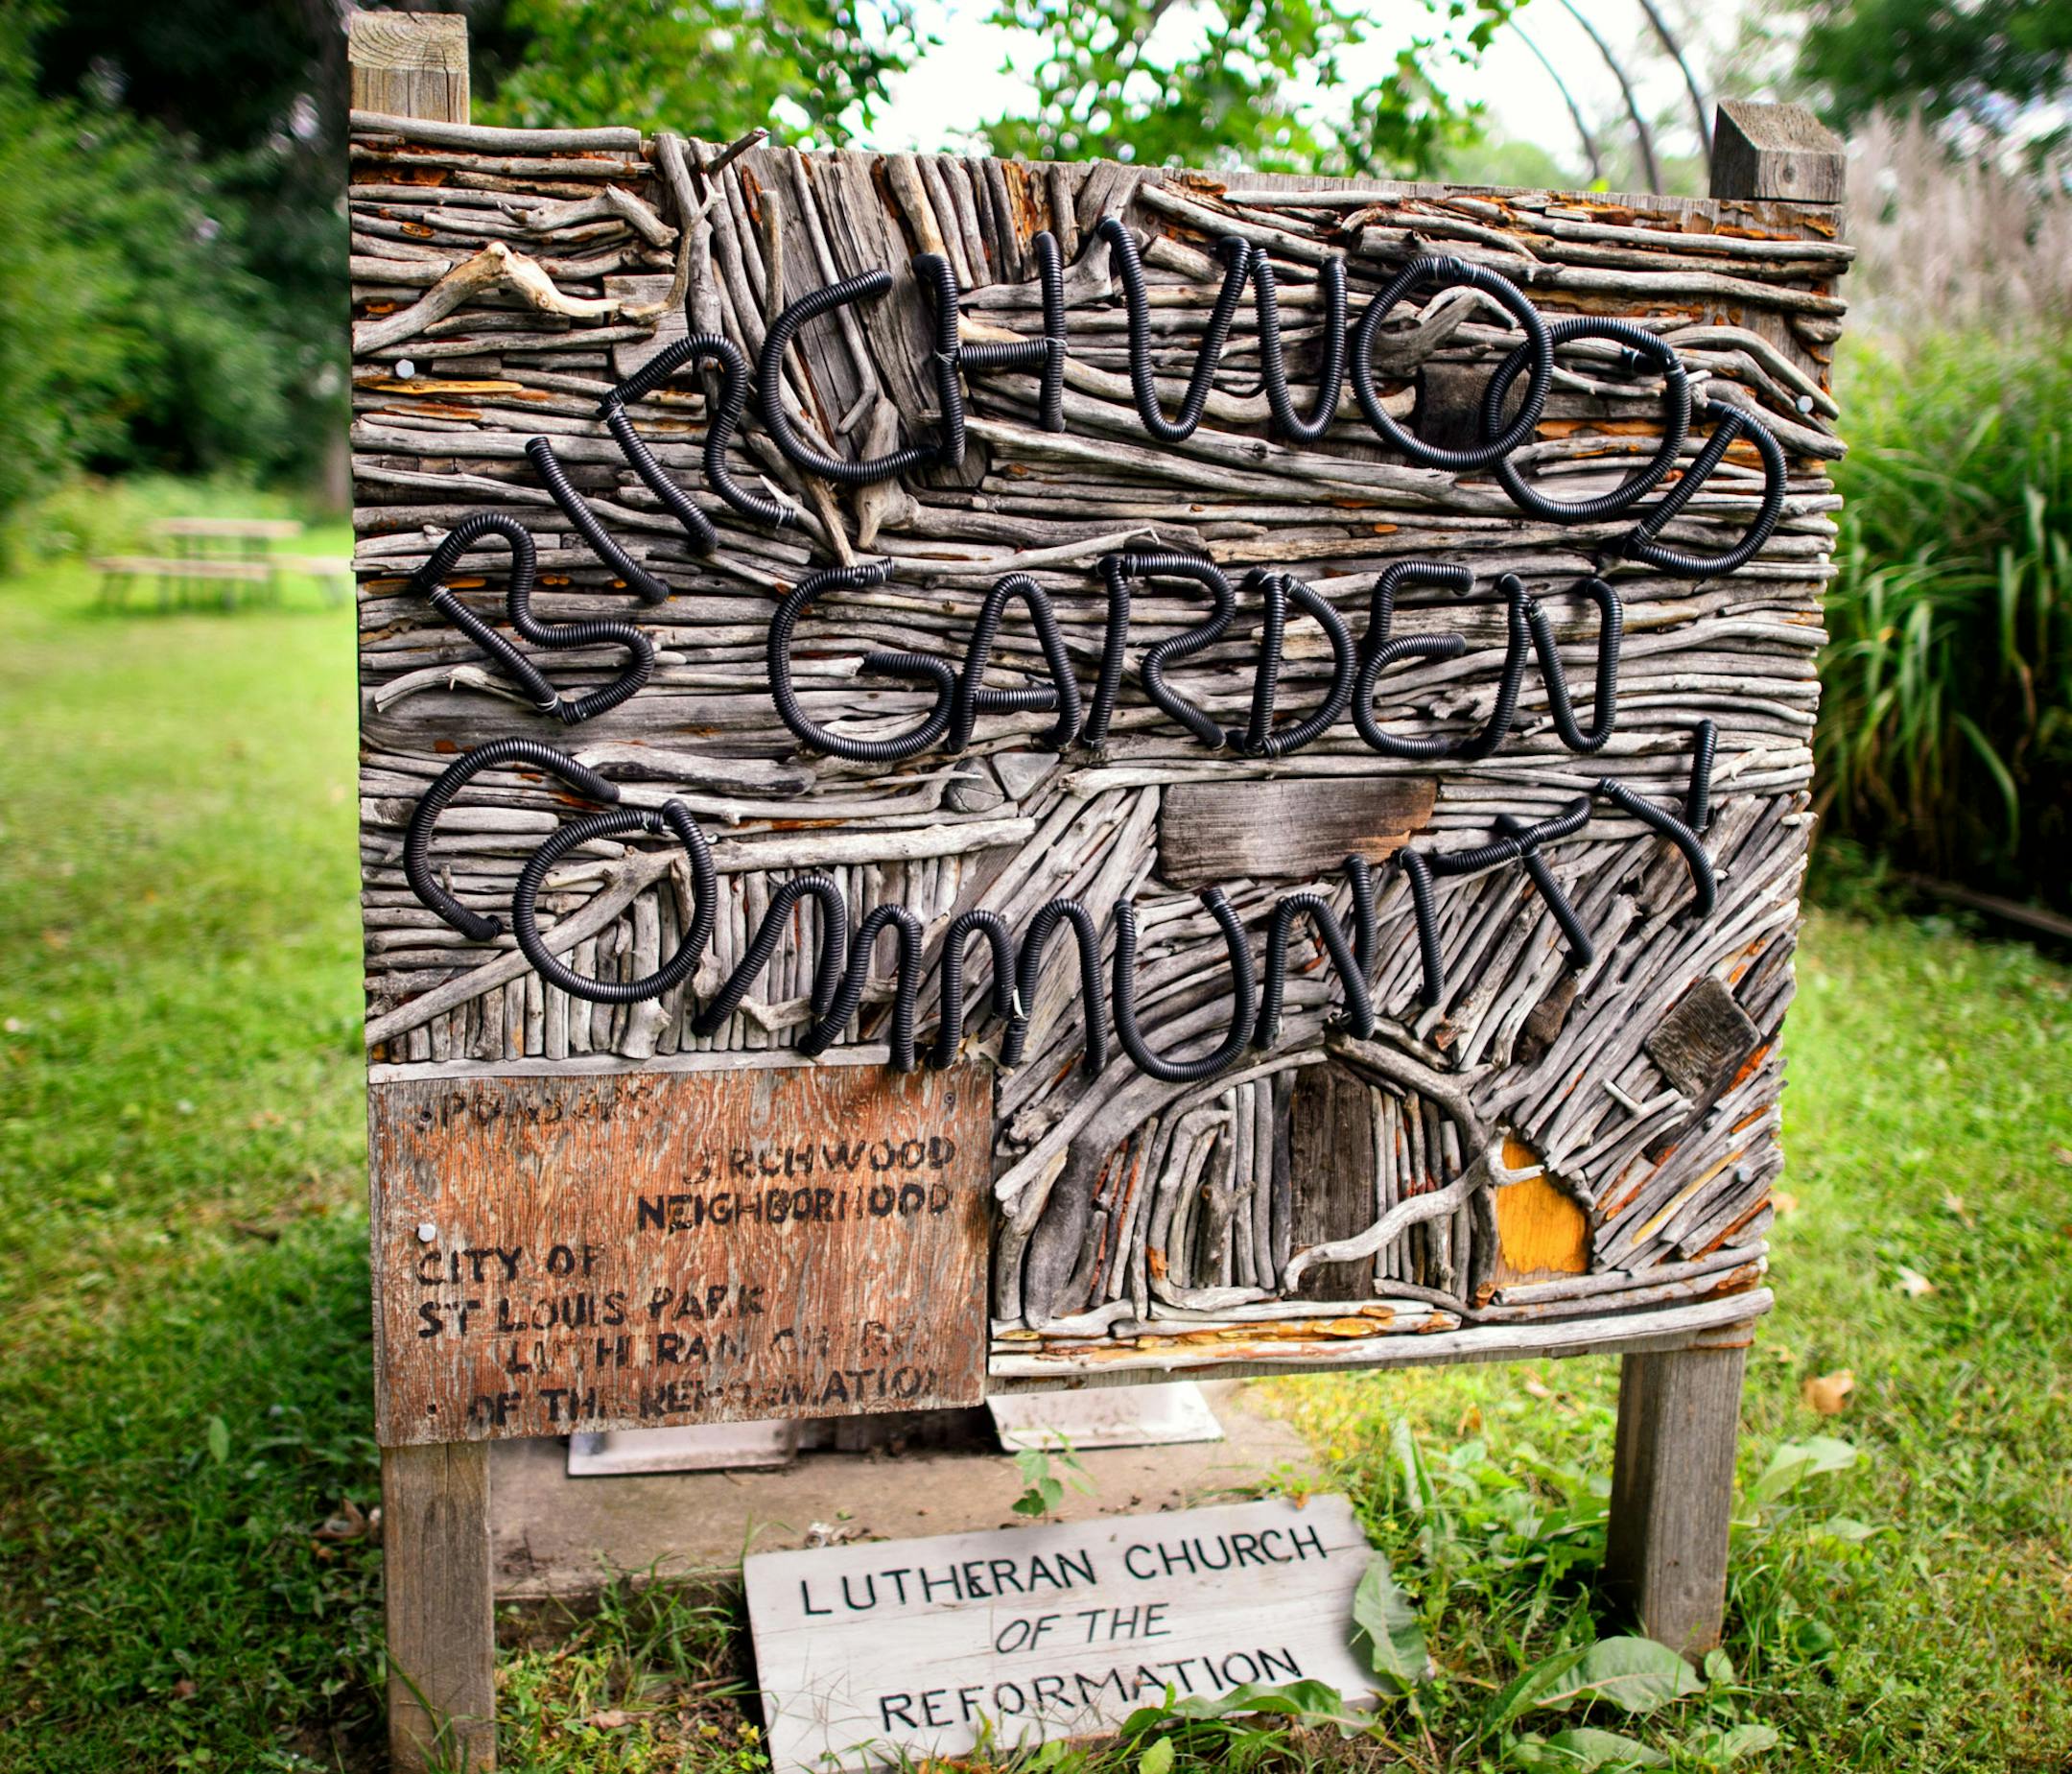 BIRCHWOOD
GARDEN
COMMUNITY
SPONSORS
BIRCHWOOD
NEIGHBORHOOD
CITY OF
ST LOUIS PARK
LUTHERAN CHURCH
OF THE REFORMATION
LUTHERAN CHURCH
OF THE
REFORMATION